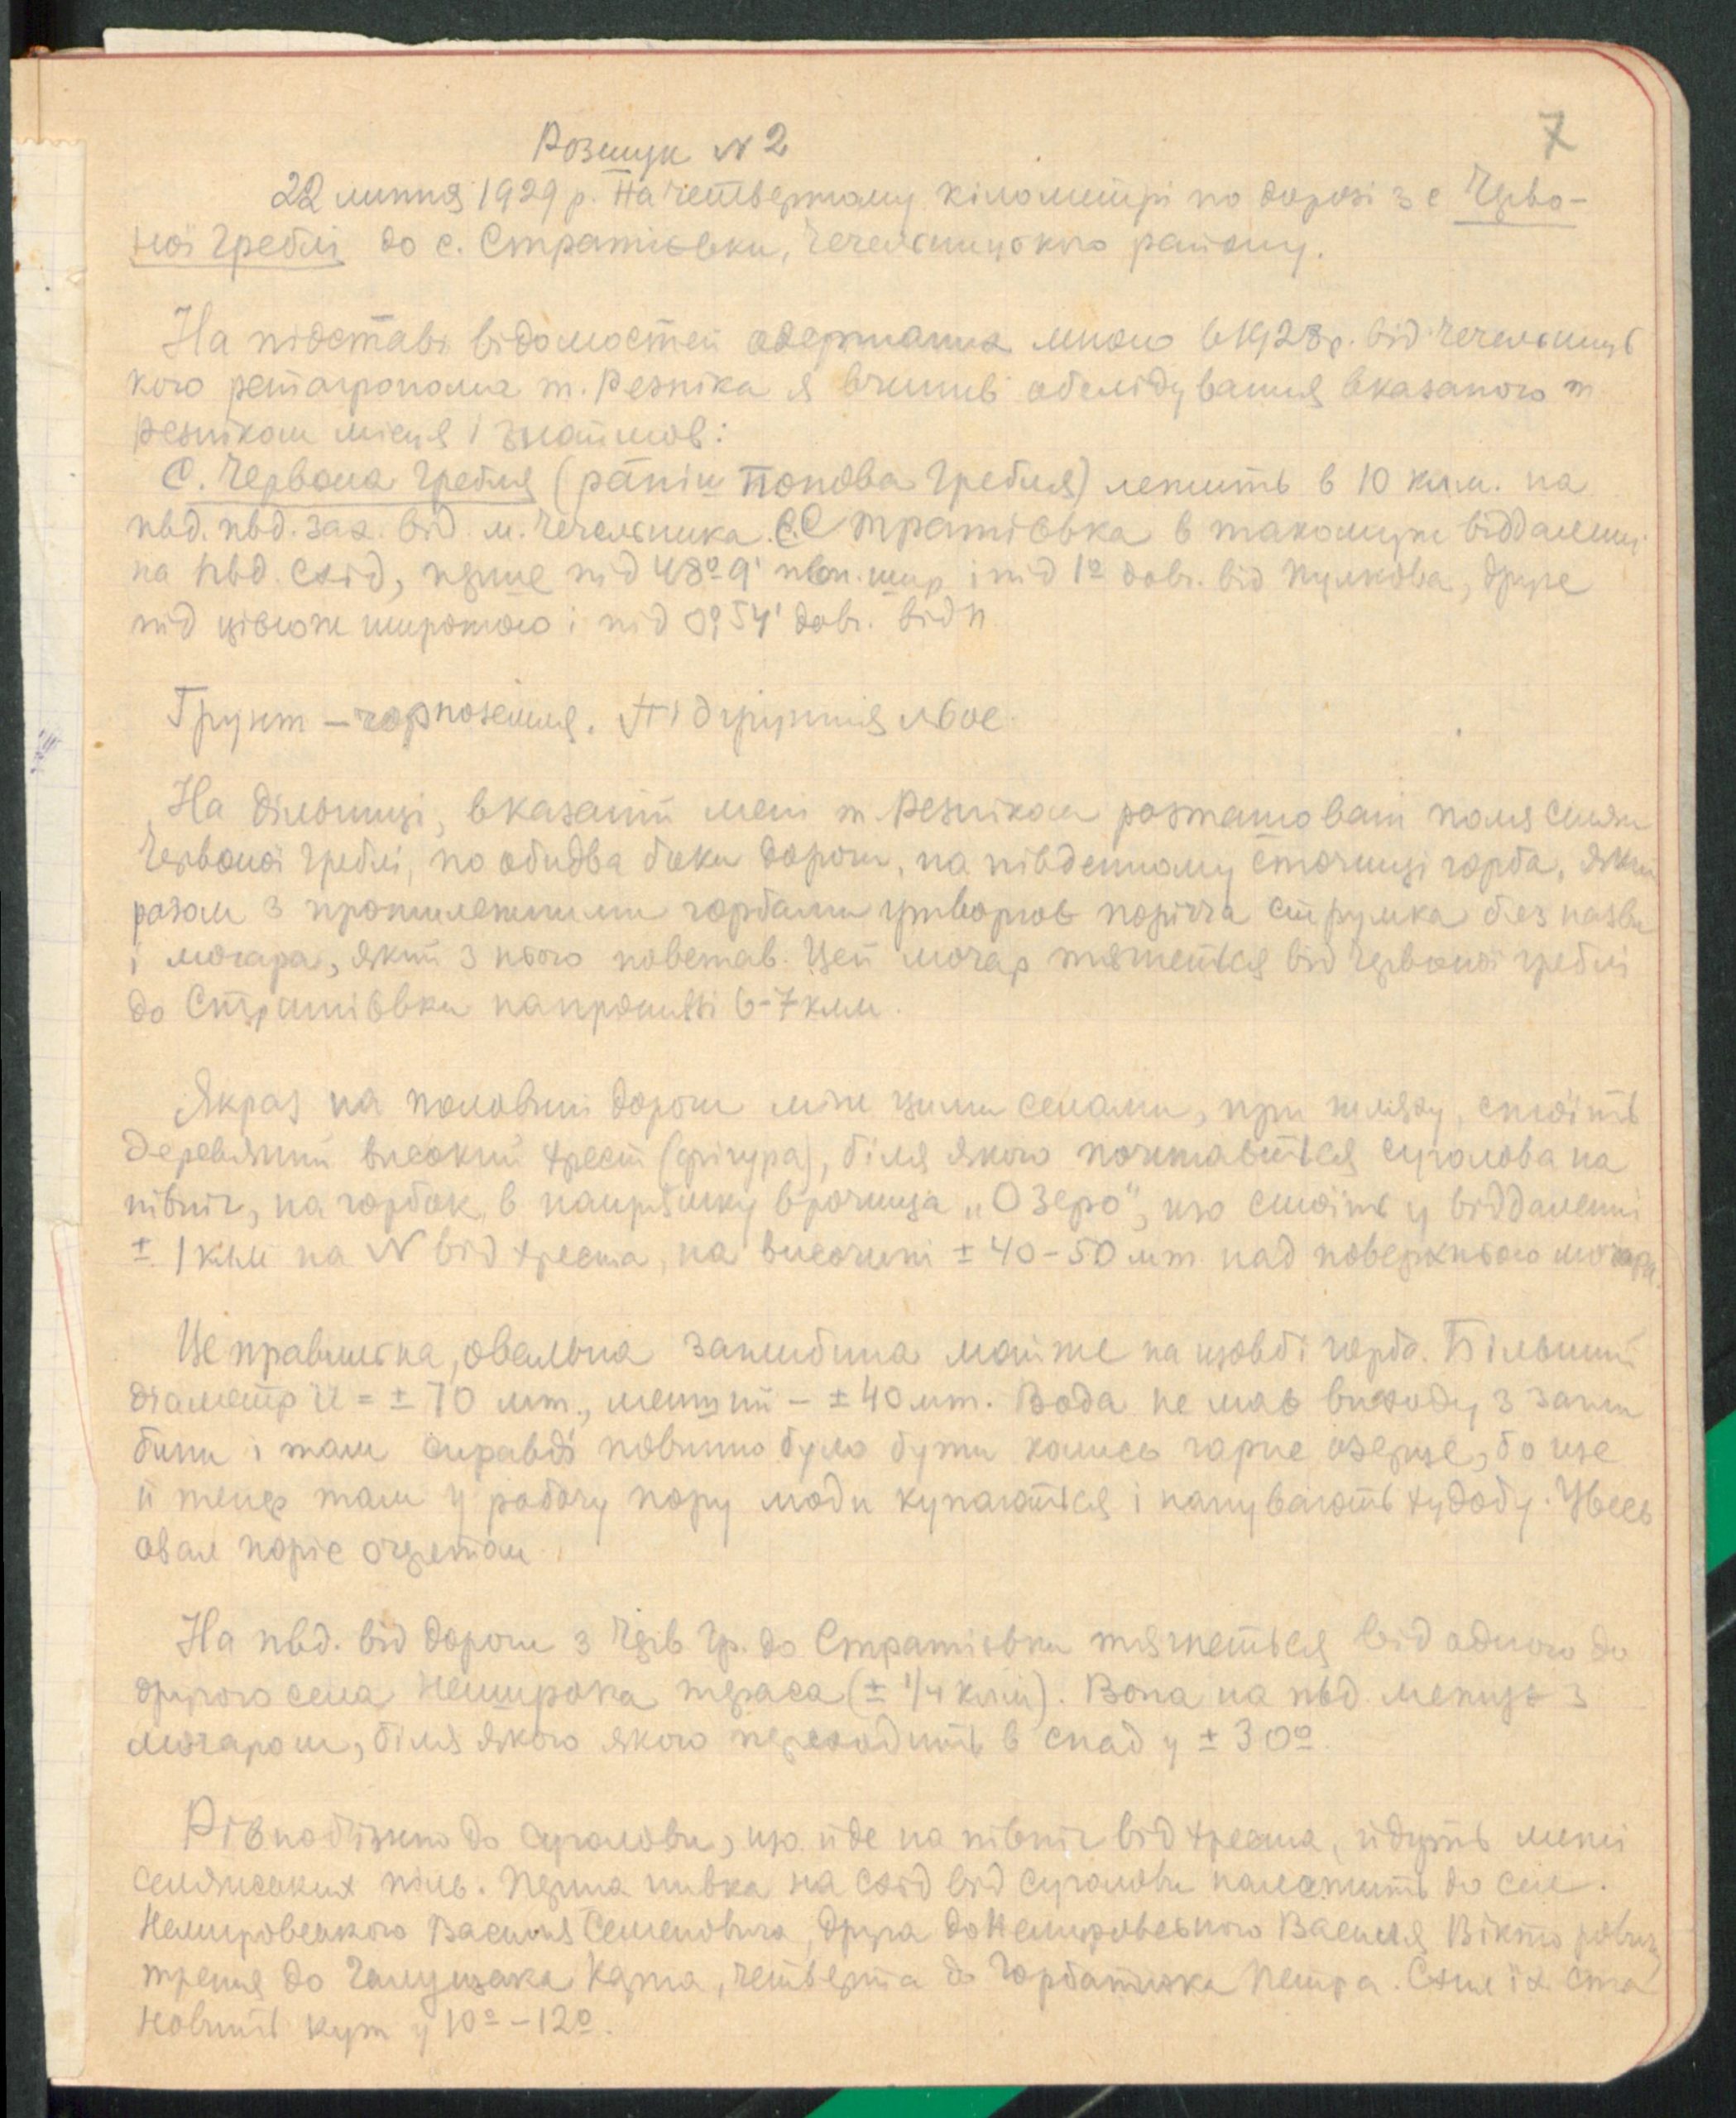 7
Розшук № 2
22 липня 1929 р. На четвертому кілометрі по дорозі з с Черво-
ної Греблі до с. Стратієвки, Чечельницького району.
На підставі відомостей одержаних мною в 1928 р. від Чечельниць
кого райагронома т. Резніка я вчинив обслідування вказаного т
Резніком місця і знайшов:
С. Червона Гребля (раніш Попова Гребля) лежить в 10 клм. на
пвд. пвд. зах. від м. Чечельника. С. Стратієвка в такомуж віддаленні
на пвд. схід, перше під 48º 9' півн. шир і під 1º довг. від Пулкова, друге
під цією ж широтою і під 0º,54' довг. від П.
Грунт – чорноземля. Підгрунтя льос.
На дільниці, вказаній мені т. Резніком розташовані поля селян
Червоної Греблі, по обидва боки дороги, на південному сточищі горба, який
разом з протилежними горбами утворює поріччя струмка без назви
і мочара, який з нього повстав. Цей мочар тягнеться від Червоної греблі
до Стратієвки на протязі 6-7 клм.
Якраз на половині дороги між цими селами, при шляху, стоїть
деревяний високий хрест (фігура), біля якого починається суголова на
північ, на горбок, в напрямку врочища „Озеро", що стоїть у віддаленні
± 1 клм на N від хреста, на височині ± 40-50 мт. над поверхнею мочара.
Це правильна, овальна заглибина майже на щовбі горба. Більший
діаметр її = ± 70 мт., менший – ± 40 мт. Вода не має виходу з загли
бини і там справді повинно було бути колись гарне озерце, бо ще
й тепер там у робочу пору люди купаються і напувають худобу. Увесь
овал поріс очеретом.
На пвд. від дороги з Черв Гр. до Стратієвки тягнеться від одного до
другого села нешироka тераса (± 1/4 клм). Вона на пвд. межує з
мочаром, біля якого якого переходить в спад у ± 30º.
Рівнобіжно до суголови, що йде на північ від хреста, йдуть межі
селянських піль. Перша нивка на схід від суголови належить до сел.
Немировського Василя Семеновича, друга до Немировського Василя Вікторовича,
третя до Галущака Карпа, четверта до Горбатюка Петра. Схил їх ста
новить кут у 10º – 12º.